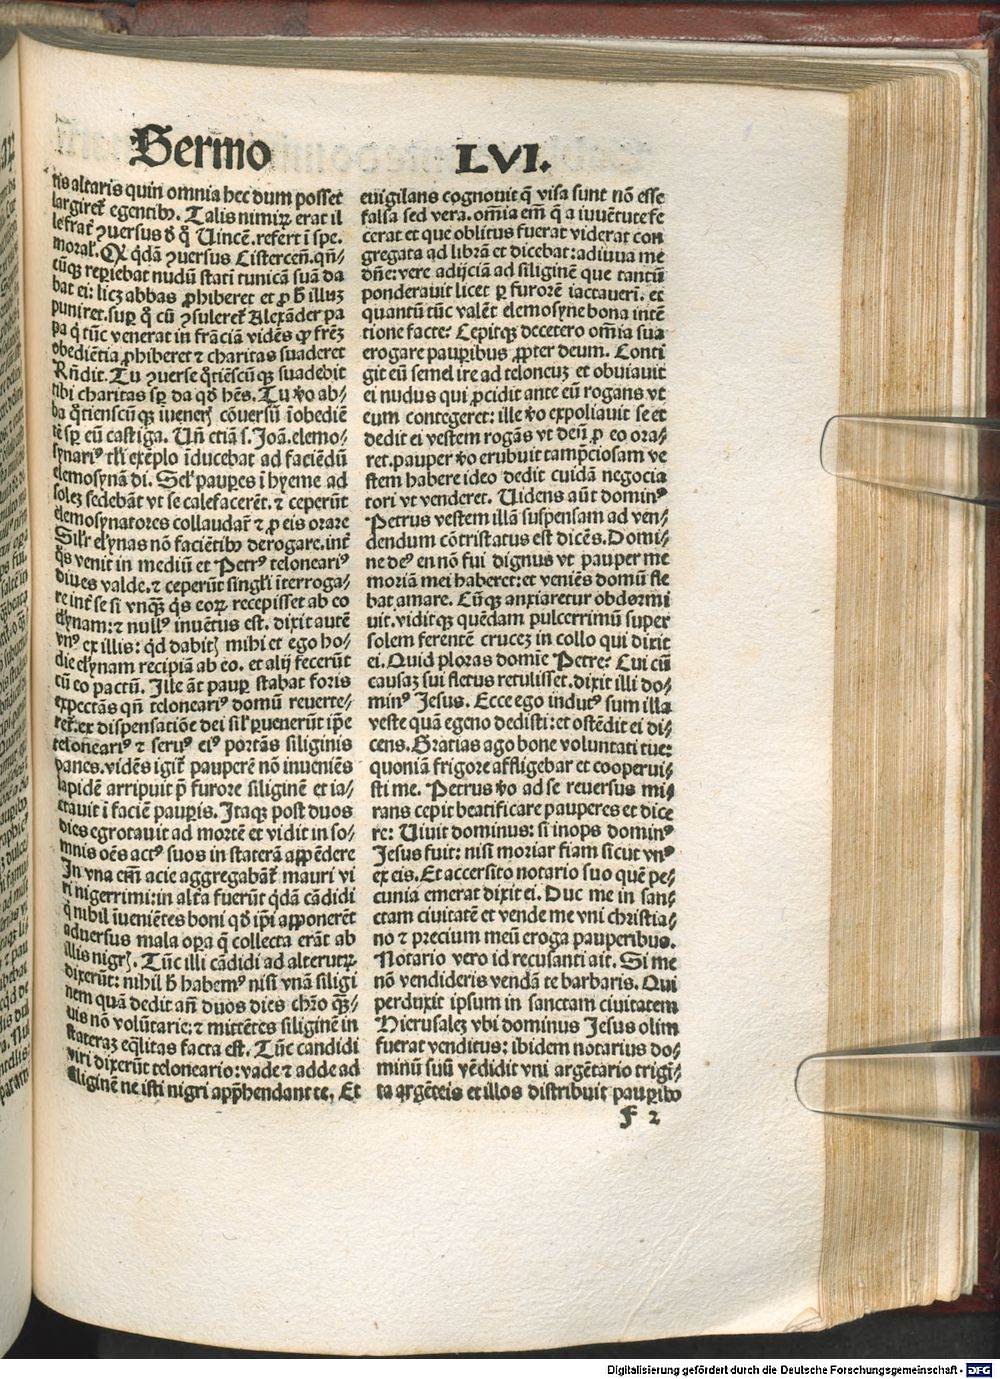 Sermo LVI.
tis altaris quin omnia hec dum posset
largiret᷑ egentibꝰ. Talis nimiꝝ erat il
le frat᷑ ꝯuersus ð q̊ Uincē. refert ĩ spe.
moral᷑. Ꝙ q̇dā ꝯuersus Cistercen̄. qn̄⸗
cūqꝫ reꝑiebat nudū statī tunicā suā da
bat ei: licꝫ abbas ꝓhiberet et ꝓ ħ illuꝫ
puniret. suꝑ q̊ cū ꝯsuleret᷑ Alexāder pa
pa q̇ tūc venerat in frāciā vidēs ꝙ frēꝫ
obediētia ꝓhiberet ⁊ charitas suaderet
Rn̄dit. Tu ꝯuerse q̊tiēscūqꝫ suadebit
tibi charitas sꝑ da qð hēs. Tu ꝟo ab⸗
ba q̊tienscūqꝫ iuenerꝭ cōuersū īobediē
tē sꝑ eū castiga. Un̄ etiā s. Joā. elemo⸗
synariꝰ tl̓i exēplo īducebat ad faciēdū
elemosynā di. Sel̓ pauꝑes ī hyeme ad
soleꝫ sedebāt vt se calefacerēt. ⁊ ceperūt
elemosynatores collaudar̄ ⁊ ꝓ eis orare
Sil̓r el̓ynas nō faciētibꝰ derogare. int᷑
q̊s venit in mediū et Petrꝰ telonearíꝰ
diues valde. ⁊ ceperūt singl̓i īterroga⸗
re int᷑ se si vnqꝫ̄ q̇s eoꝝ recepisset ab eo
el̓ynam: ⁊ nullꝰ inuētus est. dixit autē
vnꝰ ex illis: qḋ dabitꝭ mihi et ego ho⸗
die el̓ynam recipiā ab eo. et alij fecerūt
cū eo pactū. Jlle āt pauꝑ stabat foris
expectās qn̄ telonearíꝰ domū reuerte⸗
ret᷑. ex dispensatiōe dei sil̓ ꝑuenerūt ip̄e
telonearíꝰ ⁊ seruꝰ eiꝰ portās siliginis
panes. vidēs igit᷑ pauperē nō inueniēs
lapidē arripuit p̄ furore siliginē et ia⸗
ctauit ī faciē pauꝑis. Jtaqꝫ post duos
dies egrotauit ad mortē et vidit in so⸗
mnis oēs actꝰ suos in staterā appēdere
Jn vna em̄ acie aggregabāt᷑ mauri vi
ri nigerrimi: in alt᷑a fuerūt q̇dā cādidi
q̇ nihil īueniētes boni qð ip̄i apponerēt
aduersus mala oꝑa q̄ collecta erāt ab
illis nigrꝭ. Tūc illi cādidi ad alterutꝝ
dixerūt: nihil ħ habemꝰ nisi vnā siligi
nem quā dedit an̄ duos dies chr̄o qꝫ̄⸗
uis nō volūtarie: ⁊ mittētes siliginē in
stateraꝫ eq̄litas facta est. Tūc candidi
viri dixerūt teloneario: vade ⁊ adde ad
siliginē ne isti nigri app̄hendant te. Et
euigilans cognouit q̄ visa sunt nō esse
falsa sed vera. om̄ia em̄ q̄ a iuuētute fe
cerat et que oblitus fuerat viderat con
gregata ad librā et dicebat: adiuua me
dn̄e: vere adijciā ad siliginē que tantū
ponderauit licet ꝑ furorē iactaueri. et
quantū tūc valēt elemosyne bona intē
tione facte. Cepitqꝫ decetero om̄ia sua
erogare pauꝑibus ꝓpter deum. Conti
git eū semel ire ad teloneuꝫ et obuiauit
ei nudus qui ꝓcidit ante eū rogans vt
eum contegeret: ille ꝟo expoliauit se et
dedit ei vestem rogās vt deū ꝓ eo ora⸗
ret. pauper ꝟo erubuit tam p̄ciosam ve
stem habere ideo dedit cuidā negocia
tori vt venderet. Uidens aūt dominꝰ
Petrus vestem illā suspensam ad ven⸗
dendum cōtristatus est dicēs. Domi⸗
ne deꝰ en nō fui dignus vt pauper me
moriā mei haberet: et veniēs domū fle
bat amare. Cūqꝫ anxiaretur obdormi
uit. viditqꝫ quēdam pulcerrimū super
solem ferentē cruceꝫ in collo qui dixit
ei. Quid ploras domīe Petre? Cui cū
causaꝫ sui fletus retulisset. dixit illi do⸗
minꝰ Jesus. Ecce ego indutꝰ sum illa
veste quā egeno dedisti: et ostēdit ei di
cens. Gratias ago bone voluntati tue:
quoniā frigore affligebar et cooperui⸗
sti me. Petrus ꝟo ad se reuersus mi⸗
rans cepit beatificare pauperes et dice
re: Uiuit dominus: si inops dominꝰ
Jesus fuit: nisi moriar fiam sicut vnꝰ
ex eis. Et accersito notario suo quē pe⸗
cunia emerat dixit ei. Duc me in san⸗
ctam ciuitatē et vende me vni christia⸗
no ⁊ precium meū eroga pauperibus.
Notario vero id recusanti ait. Si me
nō vendideris vendā te barbaris. Qui
perduxit ipsum in sanctam ciuitatem
Hierusaleꝫ vbi dominus Jesus olim
fuerat venditus: ibidem notarius do⸗
minū suū vēdidit vni argētario trigī⸗
ta argēteis et illos distribuit pauꝑibꝰ
f 2
Digitalisierung gefördert durch die Deutsche Forschungsgemeinschaft - DFG